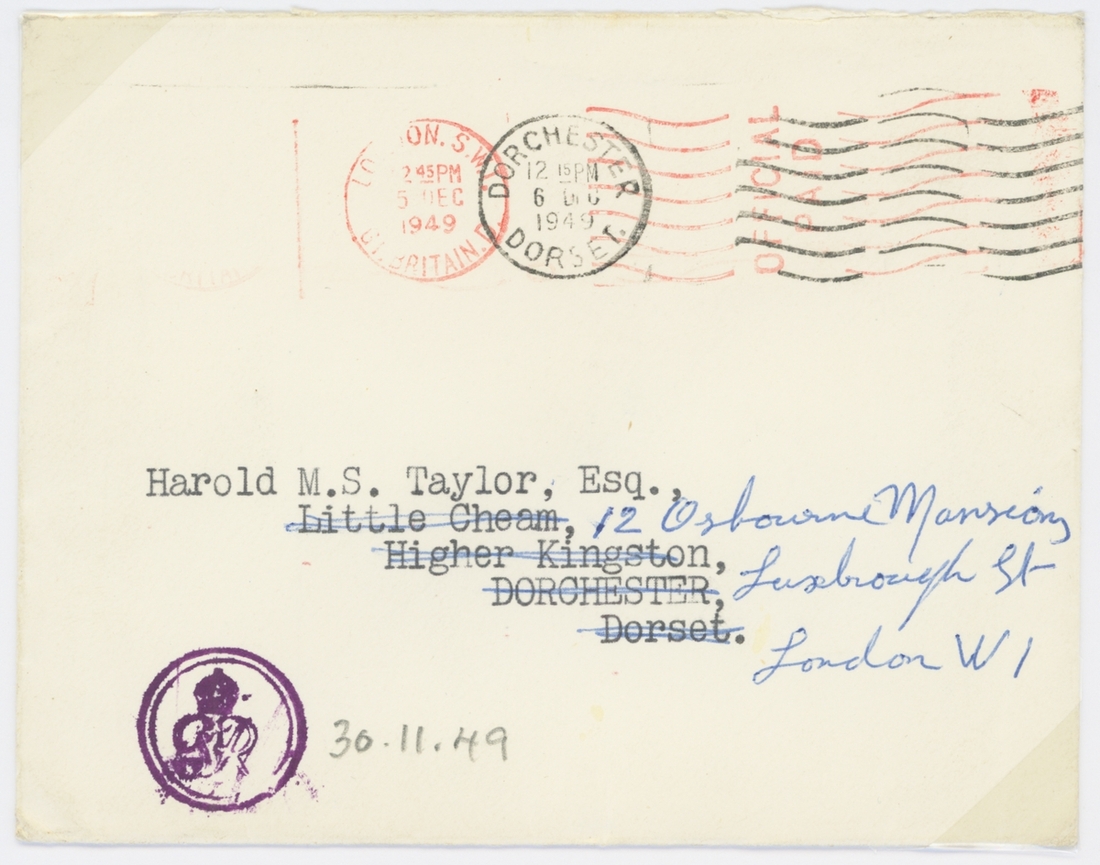 LONDON. S.W.
2 45 PM
5 DEC
1949
GT. BRITAIN.
DORCHESTER
12 15 PM
6 DEC
1949
DORSET.
OFFICIAL
PAID
Harold M.S. Taylor, Esq.,
Little Cheam, 12 Osbourne Mansions
Higher Kingston, Luxbrough St
DORCHESTER,
Dorset.
London W1
GR
30.11.49